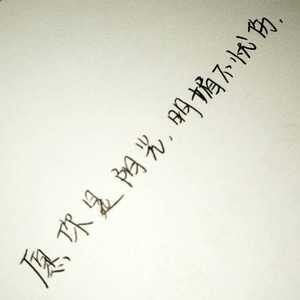 愿你是阳光,明媚不忧伤.